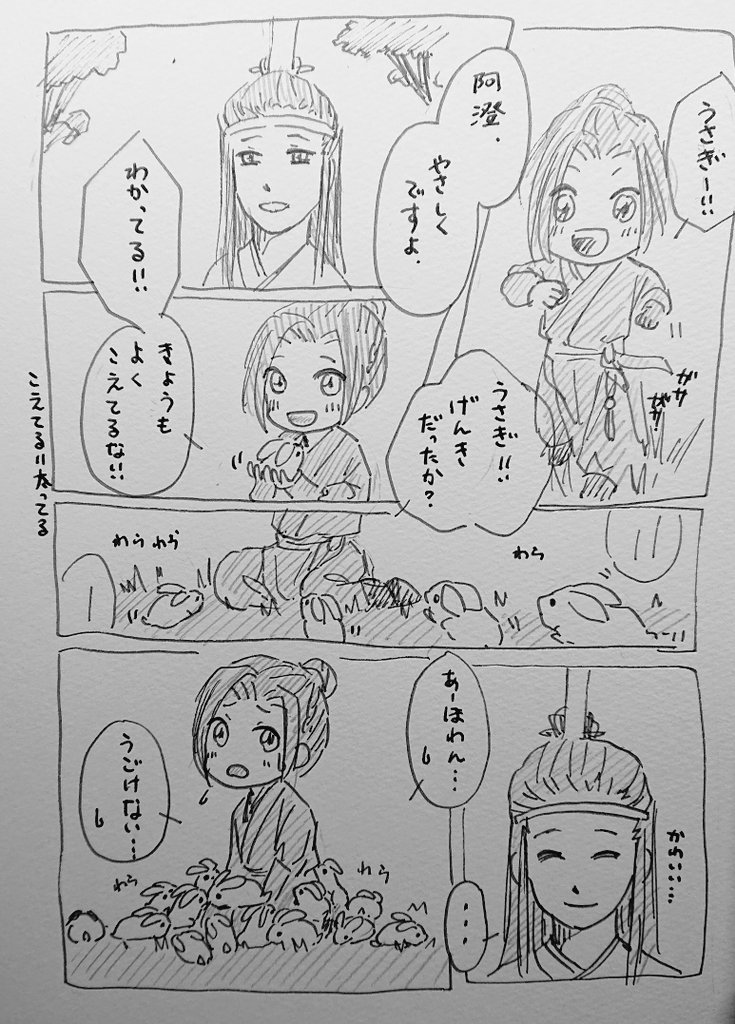 うさぎー!!
ガサ
ガサ
阿澄、
やさしく
ですよ。
わかってる!!
うさぎ!!
げんき
だったか?
きょうも
よく
こえてるな!!
こえてる=太ってる
わら
わら
わら
あーほわん…
うごけない…
わら
わら
かわいい…
…